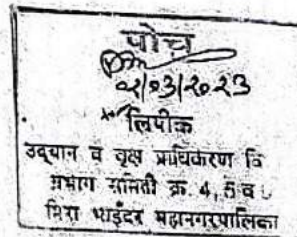 पोच
०२/०३/२०२३
लिपीक
उद्यान व वृक्ष प्राधिकरण वि
प्रभाग समिती क्र. 4, 5 व
मिरा भाईंदर महानगरपालिका